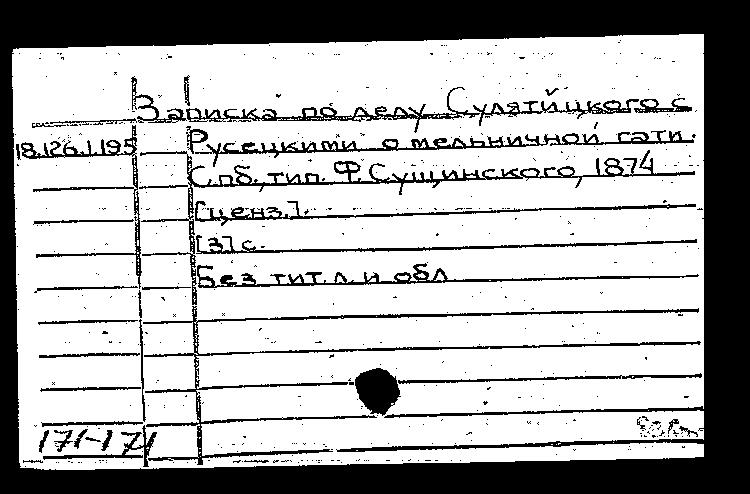 Записка по делу Сулятицкого с
18.126.1.195 Русецкими о мельничной гати.
С.пб., тип. Ф. Сущинского, 1874
[ценз.].
[3] с.
Без тит. л. и обл
171-171